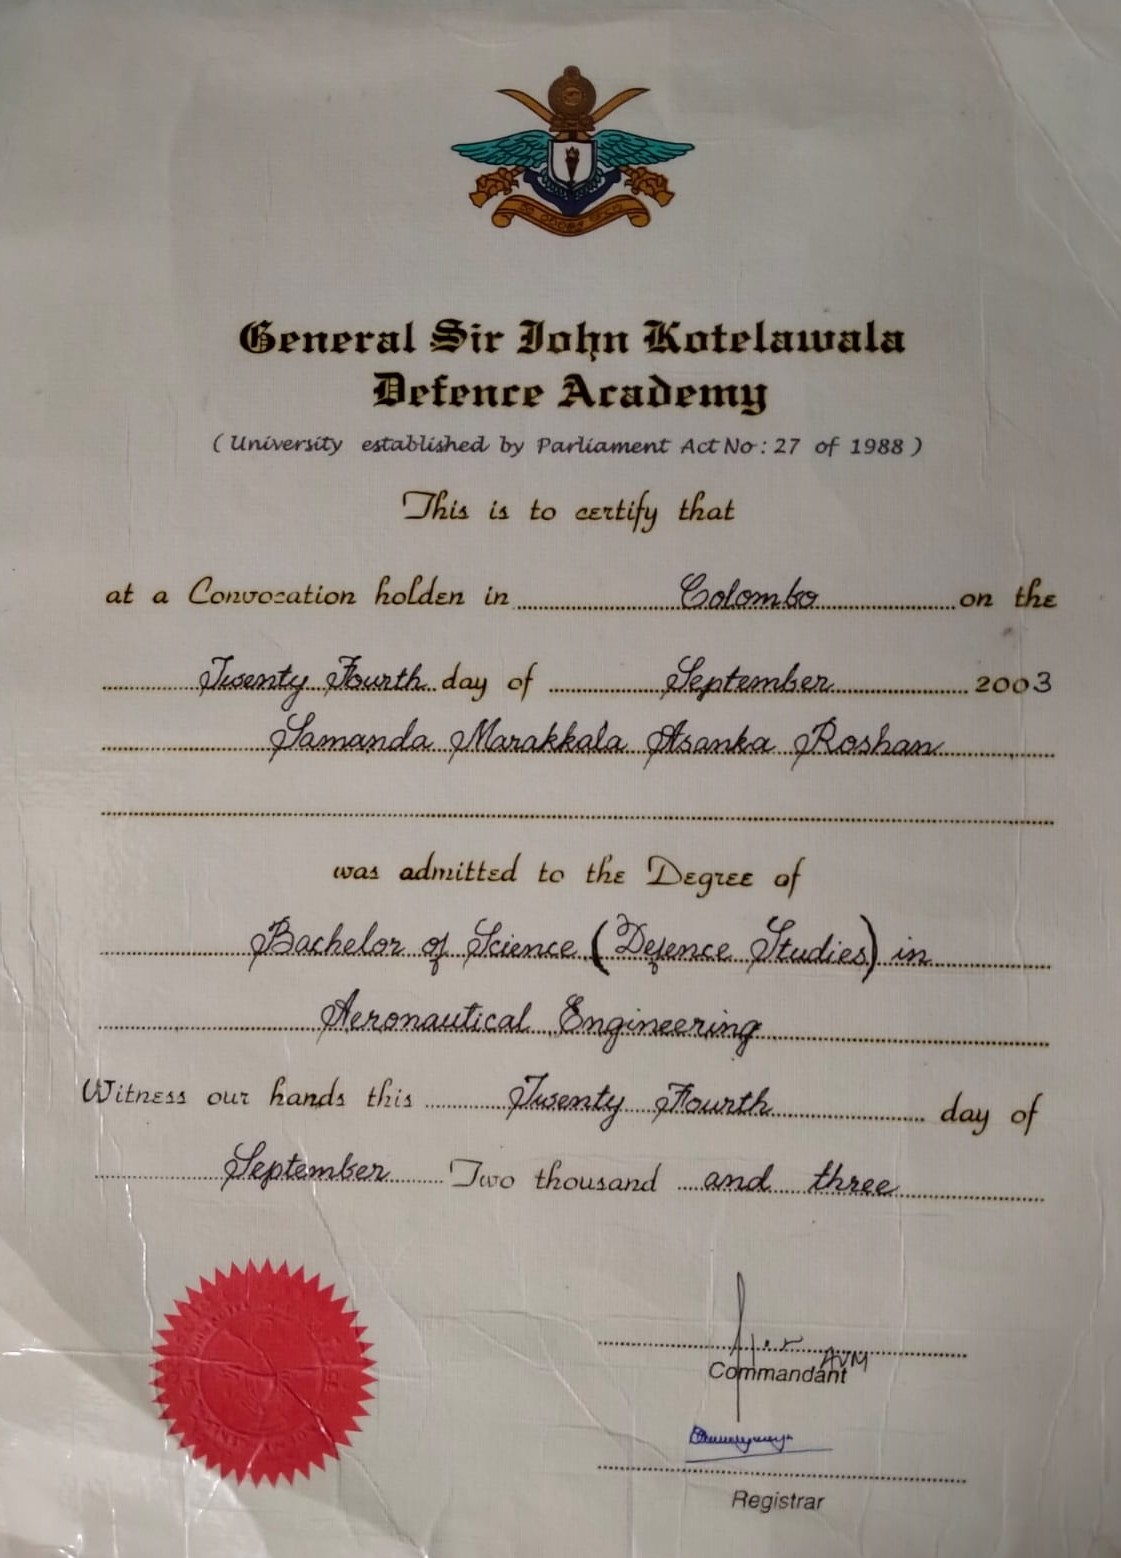 General Sir John Kotelawala
Defence Academy
( University established by Parliament Act No : 27 of 1988 )
This is to certify that
at a Convocation holden in Colombo on the
Twenty Fourth day of September 2003
Samanda Marakkala Asanka Roshan
was admitted to the Degree of
Bachelor of Science (Defence Studies) in
Aeronautical Engineering
Witness our hands this Twenty Fourth day of
September Two thousand and three
AVM
Commandant
Registrar